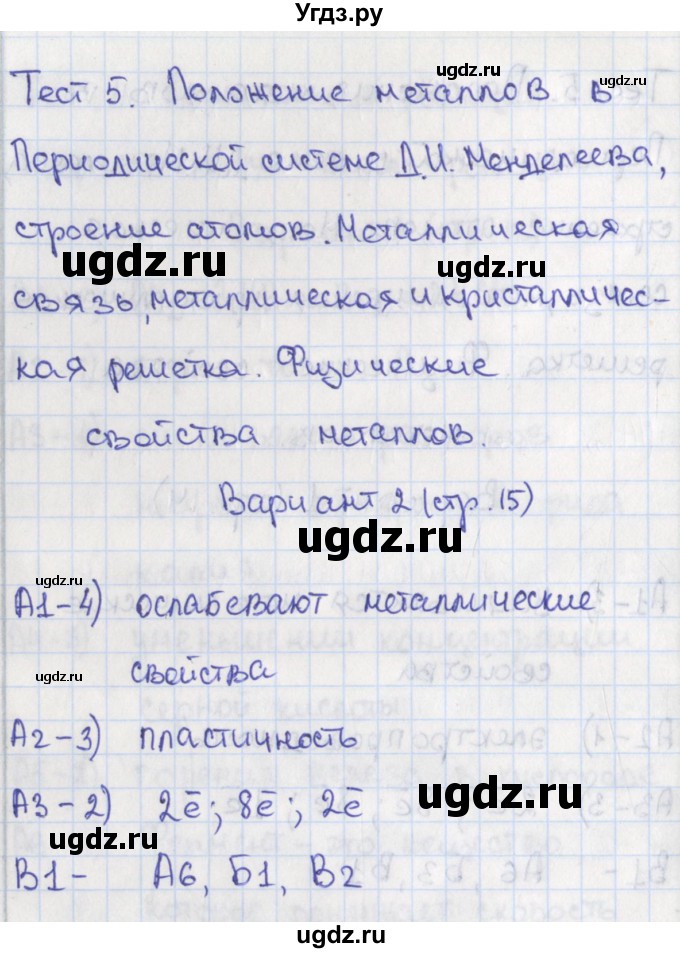 Угдз.ру
Тест 5. Положение металлов в
Периодической системе Д.И. Менделеева,
строение атомов. Металлическая
связь, металлическая и кристалличес-
кая решетка. Физические
свойства металлов.
Вариант 2 (стр. 15)
А1-4) ослабевают металлические
свойства
А2-3) пластичность
А3-2) 2ē; 8ē; 2ē
В1- А6, Б1, В2
ugdz.ru
ugdz.ru
ugdz.ru
ugdz.ru
ugdz.ru
ugdz.ru
ugdz.ru
ugdz.ru
ugdz.ru
ugdz.ru